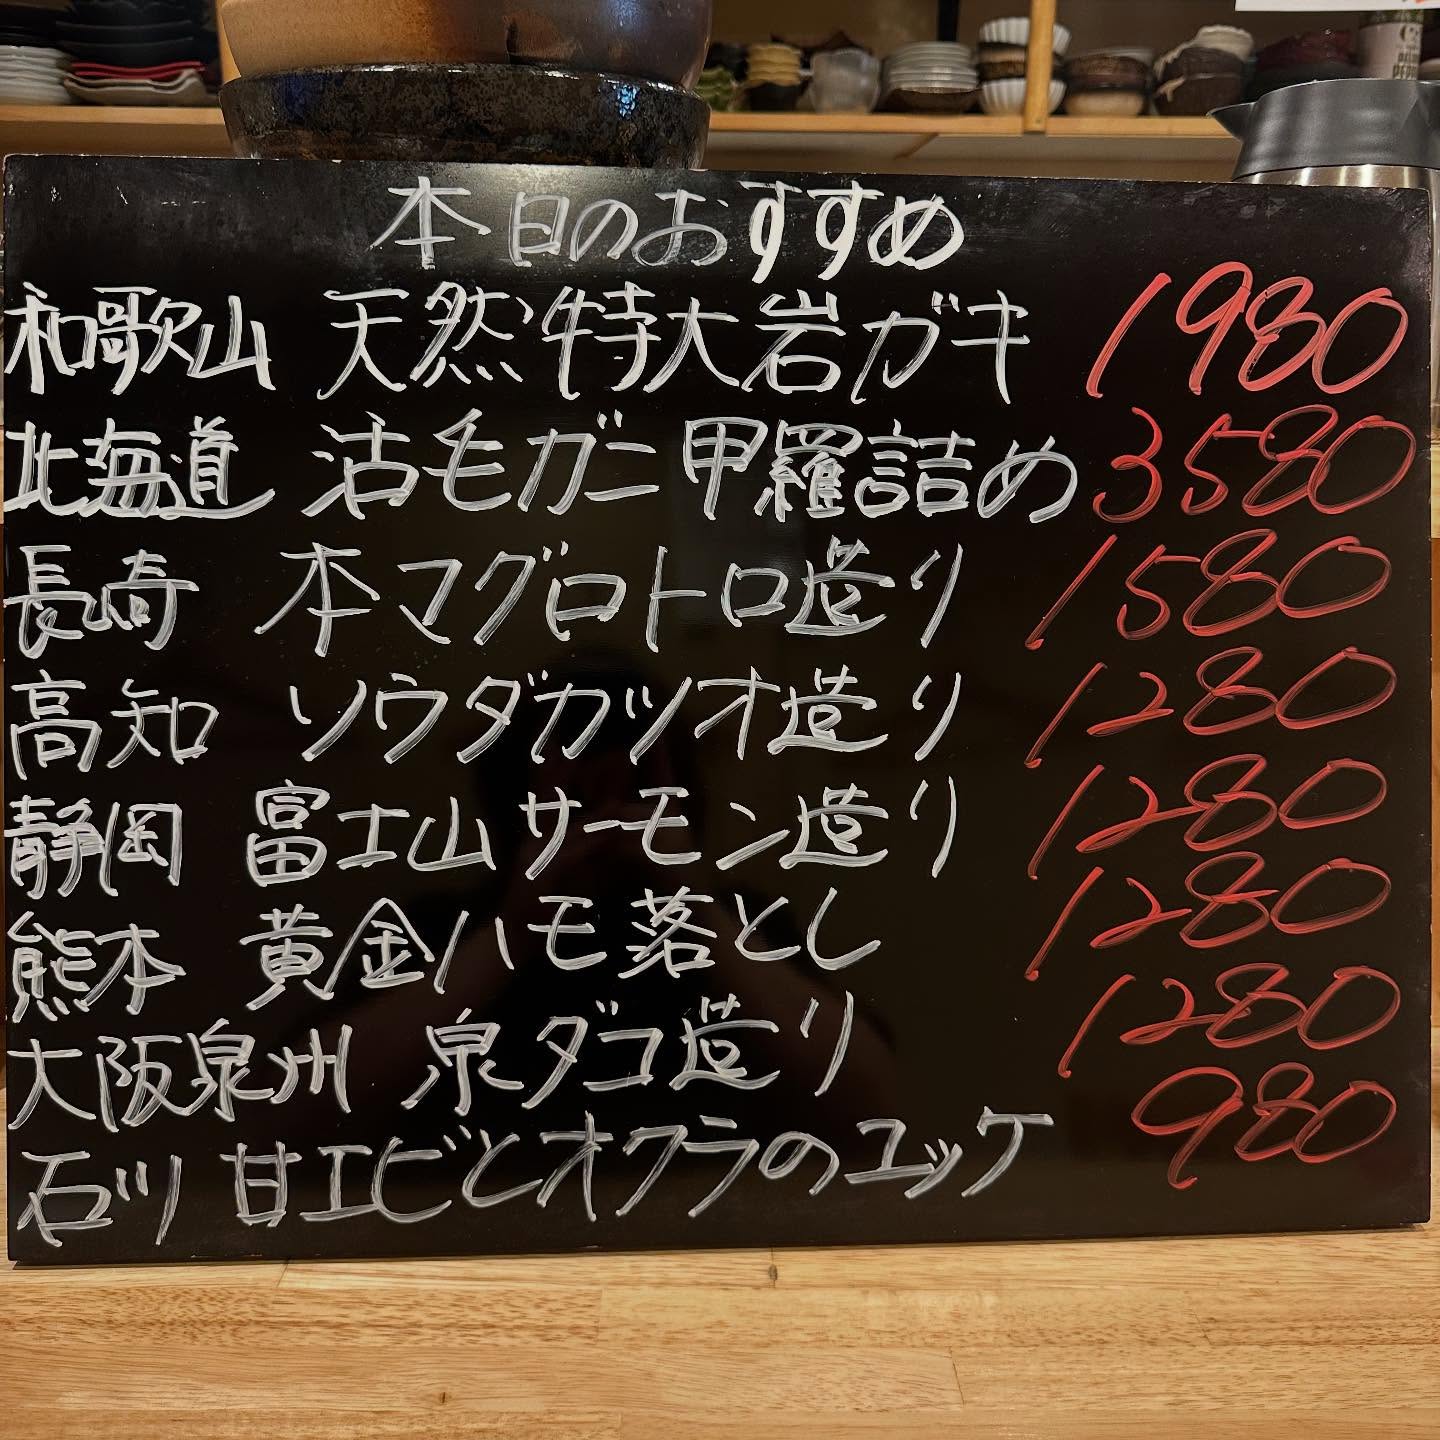 本日のおすすめ
和歌山 天然特大岩ガキ 1980
北海道 活毛ガニ甲羅詰め 3580
長崎 本マグロトロ造り 1580
高知 ソウダカツオ造り 1280
静岡 富士山サーモン造り 1280
熊本 黄金ハモ落とし 1280
大阪泉州 泉ダコ造り 1280
石川 甘エビとオクラのユッケ 980